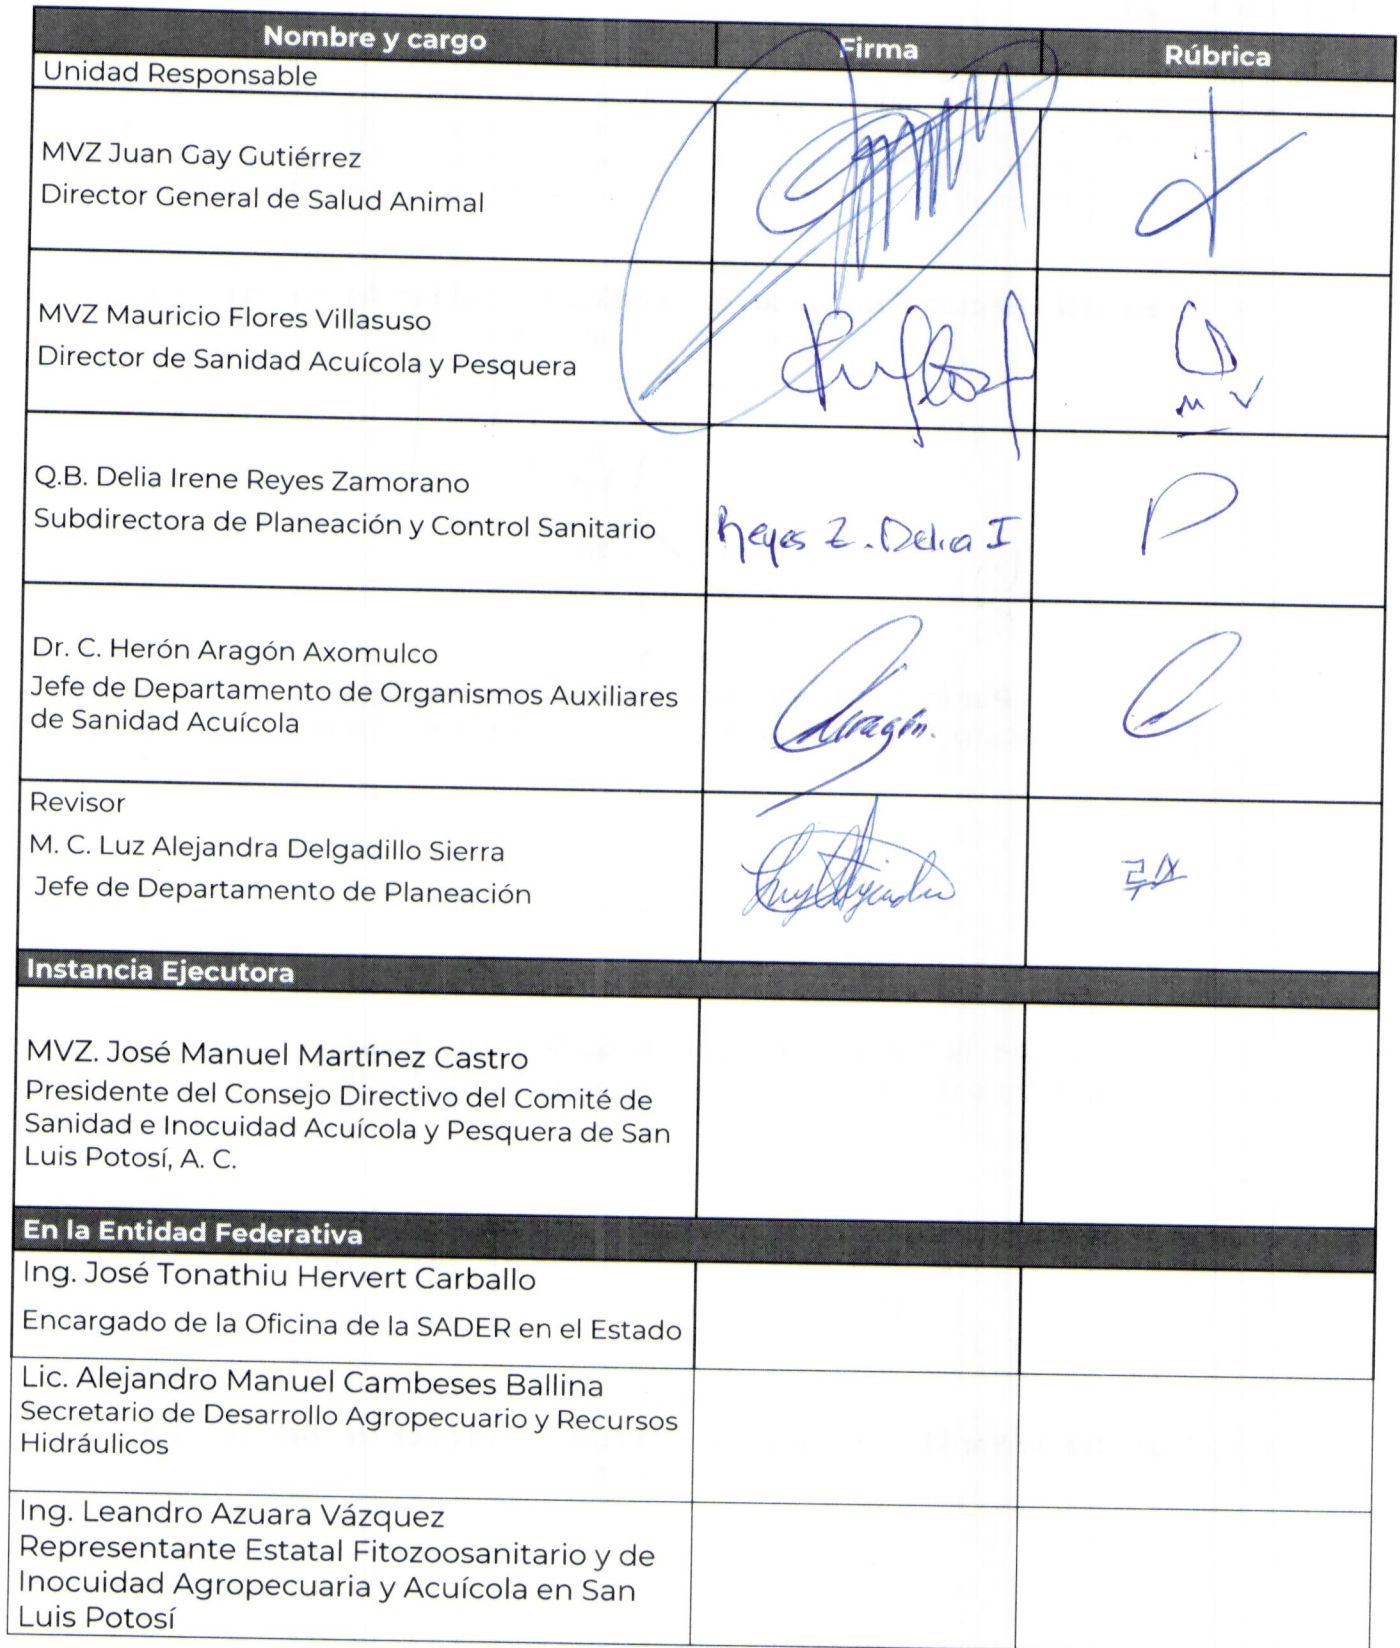 Nombre y cargo Firma Rúbrica
Unidad Responsable
MVZ Juan Gay Gutiérrez
Director General de Salud Animal
MVZ Mauricio Flores Villasuso
Director de Sanidad Acuícola y Pesquera
M V
Q.B. Delia Irene Reyes Zamorano
Subdirectora de Planeación y Control Sanitario
Reyes Z. Delia I
Dr. C. Herón Aragón Axomulco
Jefe de Departamento de Organismos Auxiliares
de Sanidad Acuícola
Aragón.
Revisor
M. C. Luz Alejandra Delgadillo Sierra
Jefe de Departamento de Planeación
Luz Alejandra
Instancia Ejecutora
MVZ. José Manuel Martínez Castro
Presidente del Consejo Directivo del Comité de
Sanidad e Inocuidad Acuícola y Pesquera de San
Luis Potosí, A. C.
En la Entidad Federativa
Ing. José Tonathiu Hervert Carballo
Encargado de la Oficina de la SADER en el Estado
Lic. Alejandro Manuel Cambeses Ballina
Secretario de Desarrollo Agropecuario y Recursos
Hidráulicos
Ing. Leandro Azuara Vázquez
Representante Estatal Fitozoosanitario y de
Inocuidad Agropecuaria y Acuícola en San
Luis Potosí